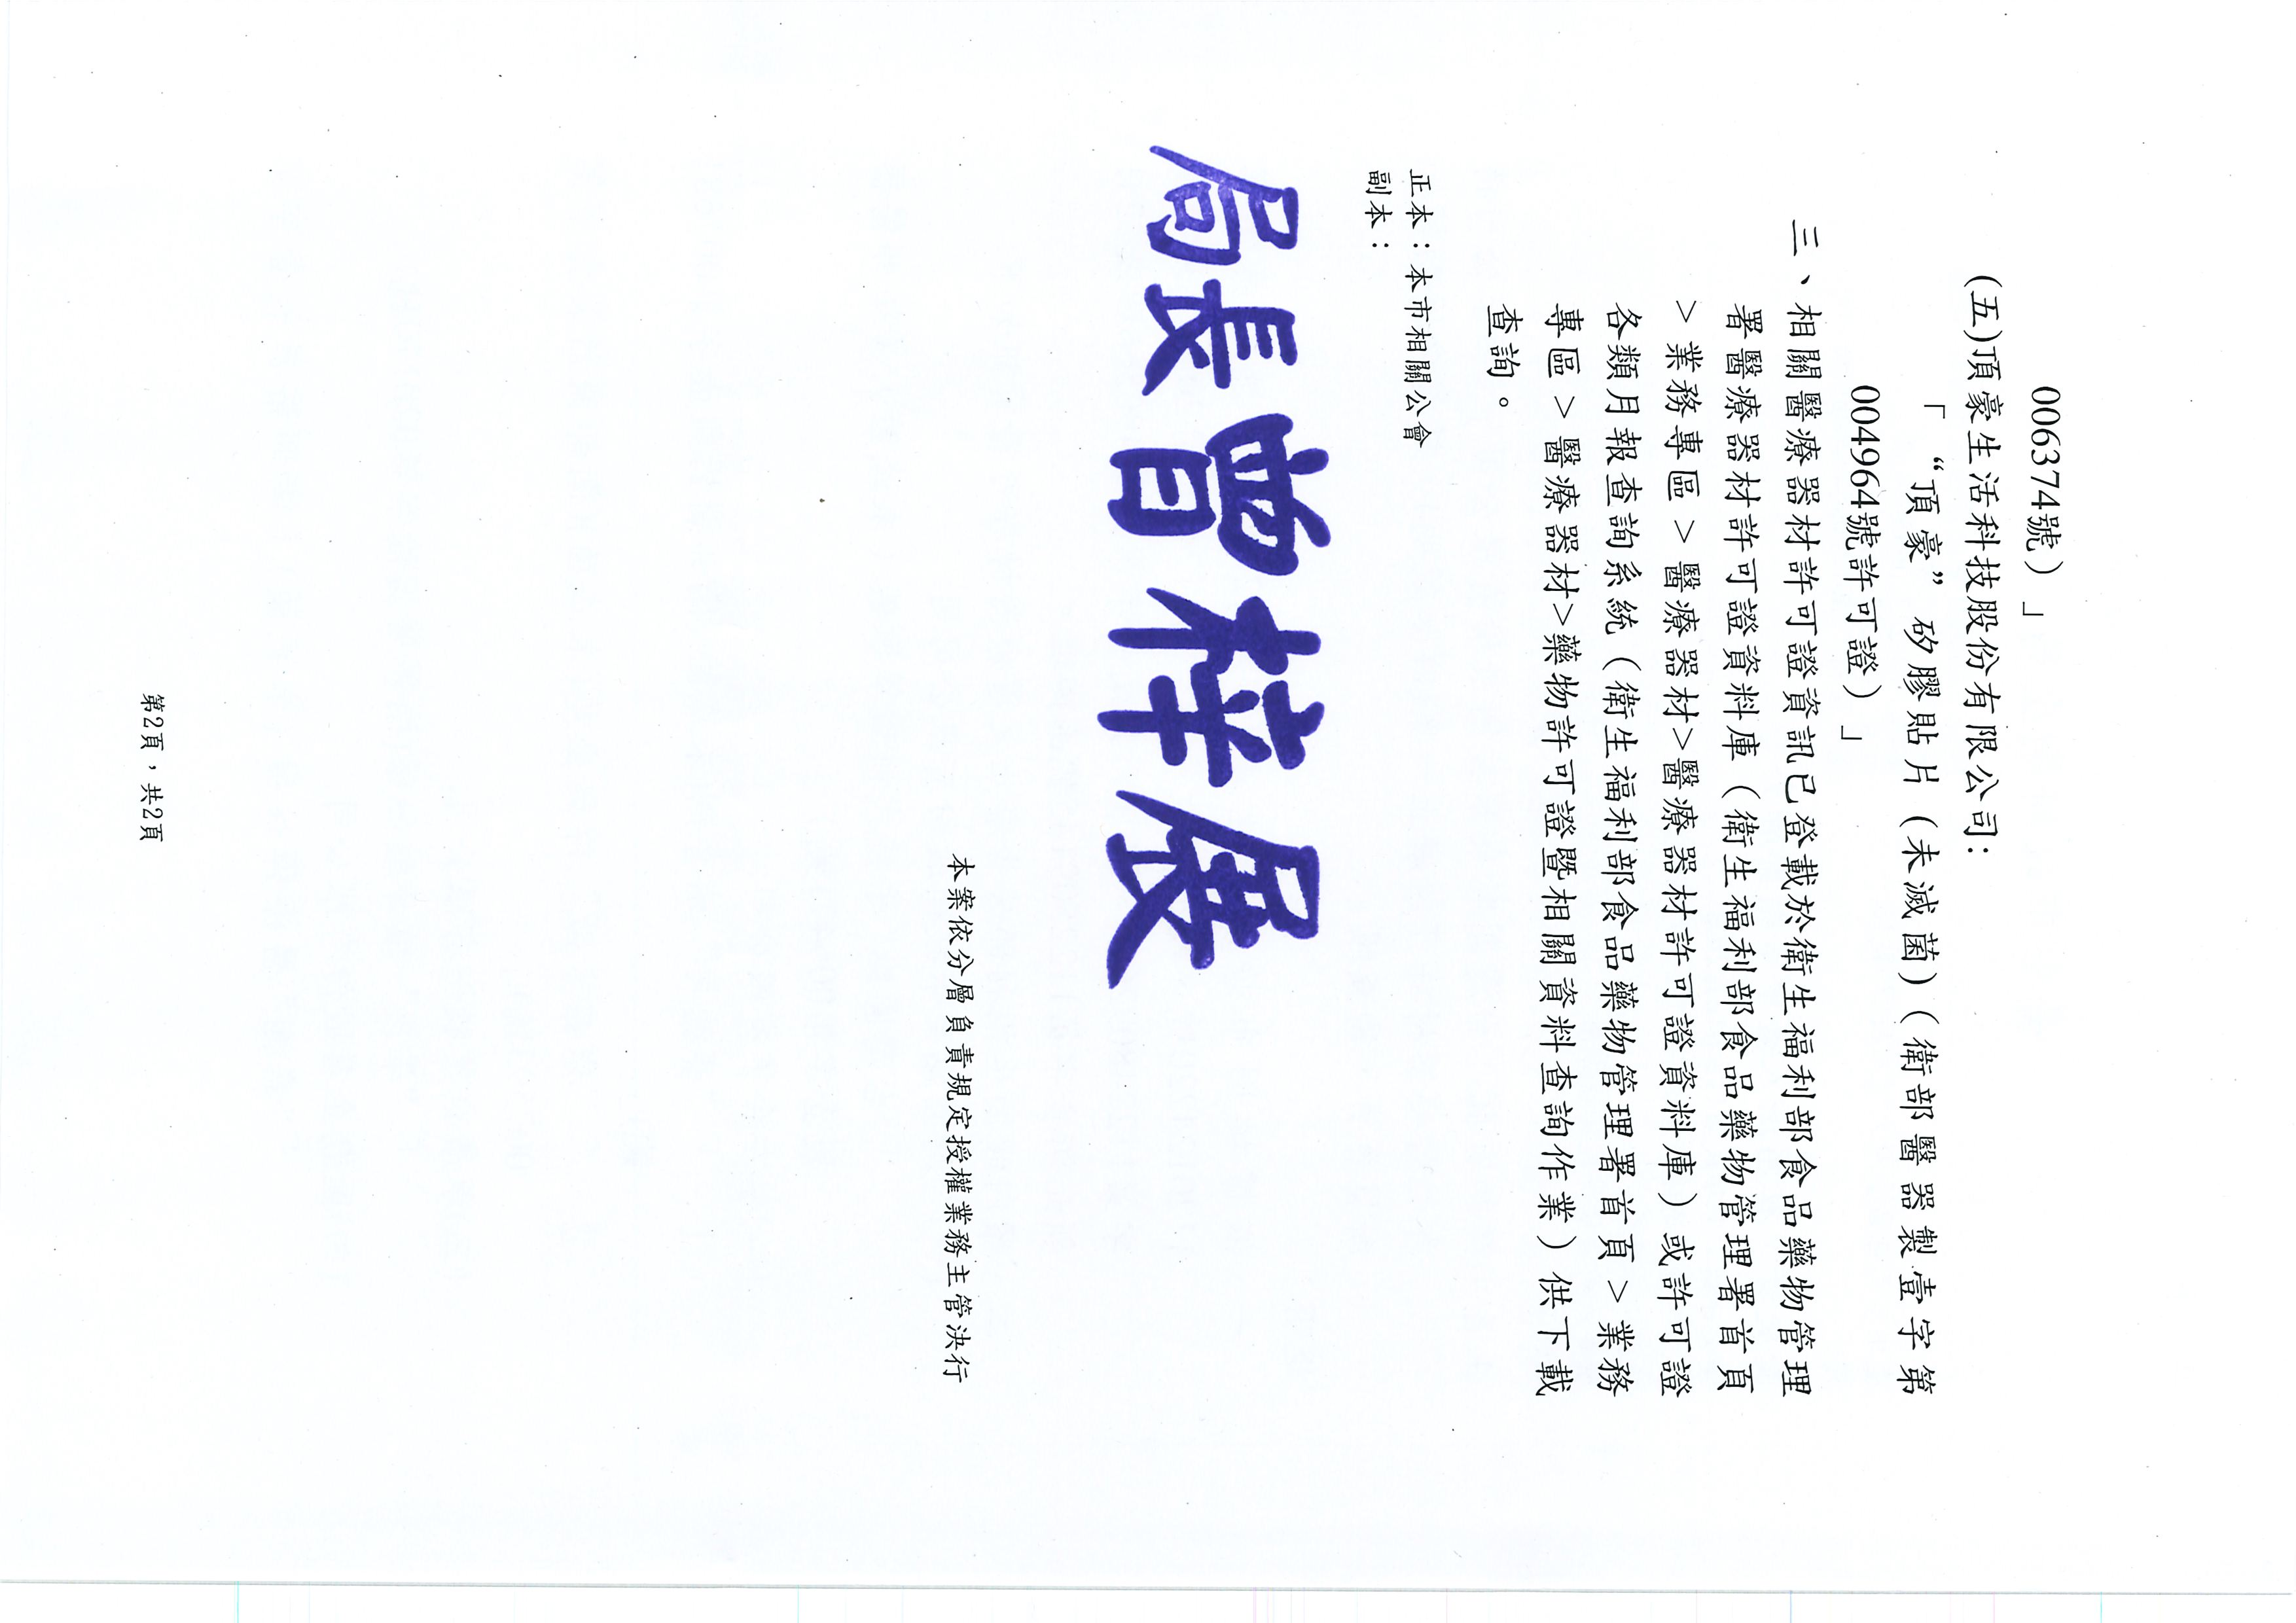 006374號）」
(五)頂豪生活科技股份有限公司：
「 “頂豪” 矽膠貼片（未滅菌）（衛部醫器製壹字第
004964號許可證）」
三、相關醫療器材許可證資訊已登載於衛生福利部食品藥物管理
署醫療器材許可證資料庫（衛生福利部食品藥物管理署首頁
>業務專區>醫療器材>醫療器材許可證資料庫）或許可證
各類月報查詢系統（衛生福利部食品藥物管理署首頁>業務
專區>醫療器材>藥物許可證暨相關資料查詢作業）供下載
查詢。
正本：本市相關公會
副本：
局長曾梓展
本案依分層負責規定授權業務主管決行
第2頁，共2頁